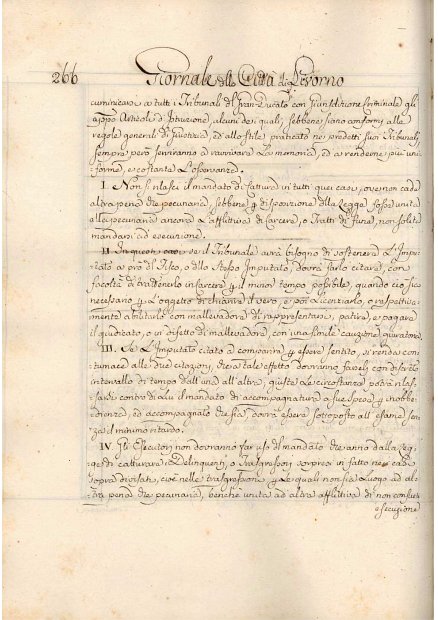 266 Giornale della Città di Livorno
cumincarsi a tutti i Tribunali del Gran-Ducato con Giurisdizione Criminale gli
Articoli di Istruzione, alcuni de quali, sebbene siano conformi alle
regole generali di Giustizia, ed allo stile praticato nei predetti suoi Tribunali,
sempre però serviranno a ravvivare la memoria, ed a renderne più uni-
forme, e costante l'osservanza.
I. Non si rilasci il mandato di cattura in tutti quei casi, ove non cade
altra pena che pecuniaria, sebbene p disposizione della Legge fosse unita
alla pecuniaria ancora l'afflittiva di Carcere, o Tratti di fune, non solite
mandarsi ad esecuzione.
II. In questi casi se il Tribunale avrà bisogno di sostenere l'Impu-
tato a pro del Fisco, o dello stesso Imputato, dovrà farlo citare, con
facoltà di tratenerlo in carcere p il minor tempo possibile, quando ciò sia
necessario p l'oggetto di chiarire il vero, e poi licenziarlo, o respettiva-
mente abilitarlo con mallevadore di rappresentarsi, patire, e pagare
il giudicato, o in difetto di mallevadore, con una simile cauzione giuratoria.
III. Se l'Imputato citato a comparire p essere sentito, si renda con-
tumace alle due citazioni, che a tale effetto dovranno farsegli con discreto
intervallo di tempo dall'una all'altra, giuste le circostanze potrà rilas-
ciarsi contro di lui il mandato di accompagnatura a sue spese p inobbe-
dienza, ed accompagnato che sia, dovrà essere sottoposto all'esame sen-
za il minimo ritardo.
IV. Gli Esecutori non dovranno far uso del mandato che anno dalla Leg-
ge di catturare i Delinquenti, o Trasgressori sorpresi in fatto nei casi
sopra divisati, cioè nelle trasgressioni, p le quali non sia luogo ad al-
tra pena che pecuniaria, benchè unita ad altra afflittiva di non consueta
esecuzione